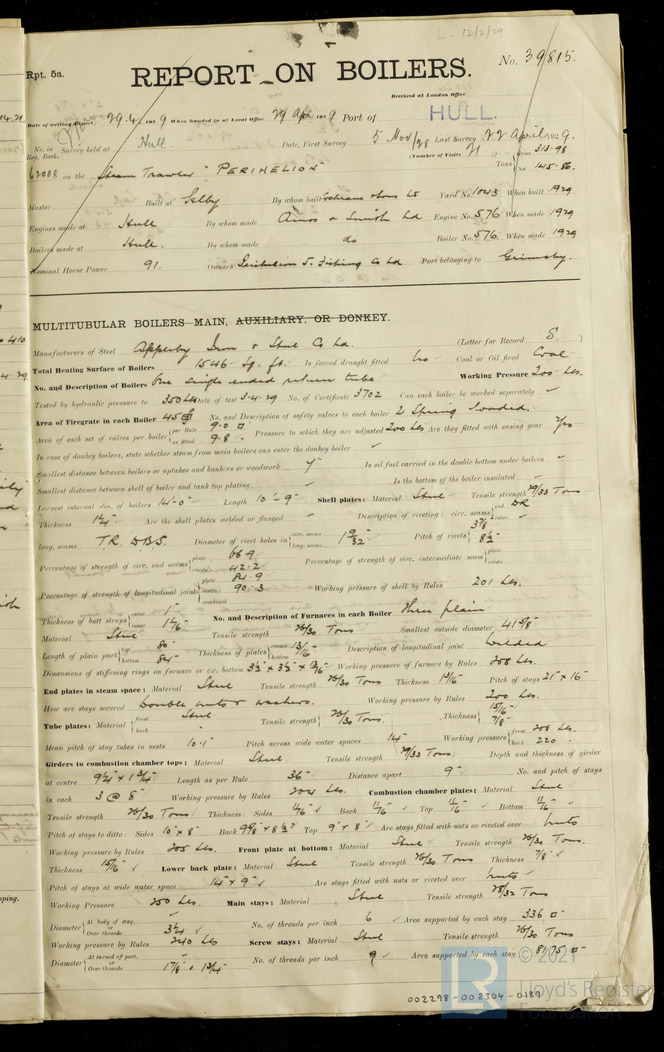 L. 12/2/29
No. 39815.
Rpt. 5a.
REPORT ON BOILERS.
Received at London Office
Date of writing Report 29.4.1929 When handed in at Local Office 29 Apr 1929 Port of HULL.
No. in Reg. Book. Survey held at Hull. Date, First Survey 5 Nov/28 Last Survey 22 April 1929.
(Number of Visits 21)
62008 on the Steam Trawler "PERIHELION" Tons Gross 313.98 Net 145.86.
Master Built at Selby By whom built Cochrane & Sons Ld Yard No. 1043 When built 1929
Engines made at Hull By whom made Amos & Smith Ld Engine No. 576 When made 1929
Boilers made at Hull. By whom made do Boiler No. 576 When made 1929
Nominal Horse Power 91. Owners Perihelion S. Fishing Co Ld Port belonging to Grimsby.
MULTITUBULAR BOILERS—MAIN, AUXILIARY, OR DONKEY.
Manufacturers of Steel Appleby Iron & Steel Co Ld. (Letter for Record S.)
Total Heating Surface of Boilers 1546 Sq. ft. Is forced draught fitted No Coal or Oil fired Coal
No. and Description of Boilers One single ended return tube. Working Pressure 200 Lbs.
Tested by hydraulic pressure to 350 Lbs Date of test 3.4.29 No. of Certificate 3702 Can each boiler be worked separately ✓
Area of Firegrate in each Boiler 45 No. and Description of safety valves to each boiler 2 Spring loaded.
Area of each set of valves per boiler per Rule 9.0 as fitted 9.8 Pressure to which they are adjusted 200 Lbs Are they fitted with easing gear Yes
In case of donkey boilers, state whether steam from main boilers can enter the donkey boiler ✓
Smallest distance between boilers or uptakes and bunkers or woodwork Is oil fuel carried in the double bottom under boilers ✓
Smallest distance between shell of boiler and tank top plating ✓ Is the bottom of the boiler insulated ✓
Largest internal dia. of boilers 14'-0" Length 10'-9" Shell plates: Material Steel Tensile strength 29/33 Tons
Thickness Are the shell plates welded or flanged ✓ Description of riveting: circ. seams end DR inter. ✓
long. seams TR. DBS. Diameter of rivet holes in circ. seams long. seams 1 9/32 Pitch of rivets 3 7/8
Percentage of strength of circ. end seams plate 66.9 rivets 42.2 Percentage of strength of circ. intermediate seam plate rivets
Percentage of strength of longitudinal joint plate 84.9 rivets 90.3 combined Working pressure of shell by Rules 201 Lbs.
Thickness of butt straps outer 1" inner 1 1/16" No. and Description of Furnaces in each Boiler Three plain
Material Steel Tensile strength 26/30 Tons Smallest outside diameter 41 5/8"
Length of plain part top 80" bottom 84" Thickness of plates crown bottom 13/16" Description of longitudinal joint Welded
Dimensions of stiffening rings on furnace or c.c. bottom Working pressure of furnace by Rules 208 Lbs.
End plates in steam space: Material Steel Tensile strength 26/30 Tons Thickness 1 1/16" Pitch of stays 21" x 16"
How are stays secured Double nuts & washers. Working pressure by Rules 200 Lbs.
Tube plates: Material front back Steel Tensile strength 26/30 Tons. Thickness 15/16" 7/8"
Mean pitch of stay tubes in nests 10.1 Pitch across wide water spaces 14" Working pressure front 208 Lbs. back 220
Girders to combustion chamber tops: Material Steel Tensile strength 29/33 Tons Depth and thickness of girder
at centre 9 1/4" x 1 3/4" Length as per Rule 36" Distance apart 9" No. and pitch of stays
in each 3 @ 8" Working pressure by Rules 204 Lbs. Combustion chamber plates: Material Steel
Tensile strength 26/30 Tons Thickness: Sides 11/16" ✓ Back 11/16" ✓ Top 11/16" ✓ Bottom 11/16" ✓
Pitch of stays to ditto: Sides 10" x 8" Back 9 5/8 x 8 1/2" Top 9" x 8" ✓ Are stays fitted with nuts or riveted over Nuts
Working pressure by Rules 205 Lbs. Front plate at bottom: Material Steel Tensile strength 26/30 Tons.
Thickness 15/16" ✓ Lower back plate: Material Steel Tensile strength 26/30 Tons Thickness 7/8" ✓
Pitch of stays at wide water space 14" x 9" ✓ Are stays fitted with nuts or riveted over Nuts ✓
Working Pressure 250 Lbs Main stays: Material Steel Tensile strength 28/32 Tons
Diameter At body of stay, or Over threads 3 1/4" ✓ No. of threads per inch 6 ✓ Area supported by each stay 336
Working pressure by Rules 240 Lbs Screw stays: Material Steel Tensile strength 26/30 Tons
Diameter At turned off part, or Over threads 1 7/8" & 1 3/4" No. of threads per inch 9 ✓ Area supported by each stay 81.75
002298-002304-0189
© 2021
Lloyd's Register
Foundation